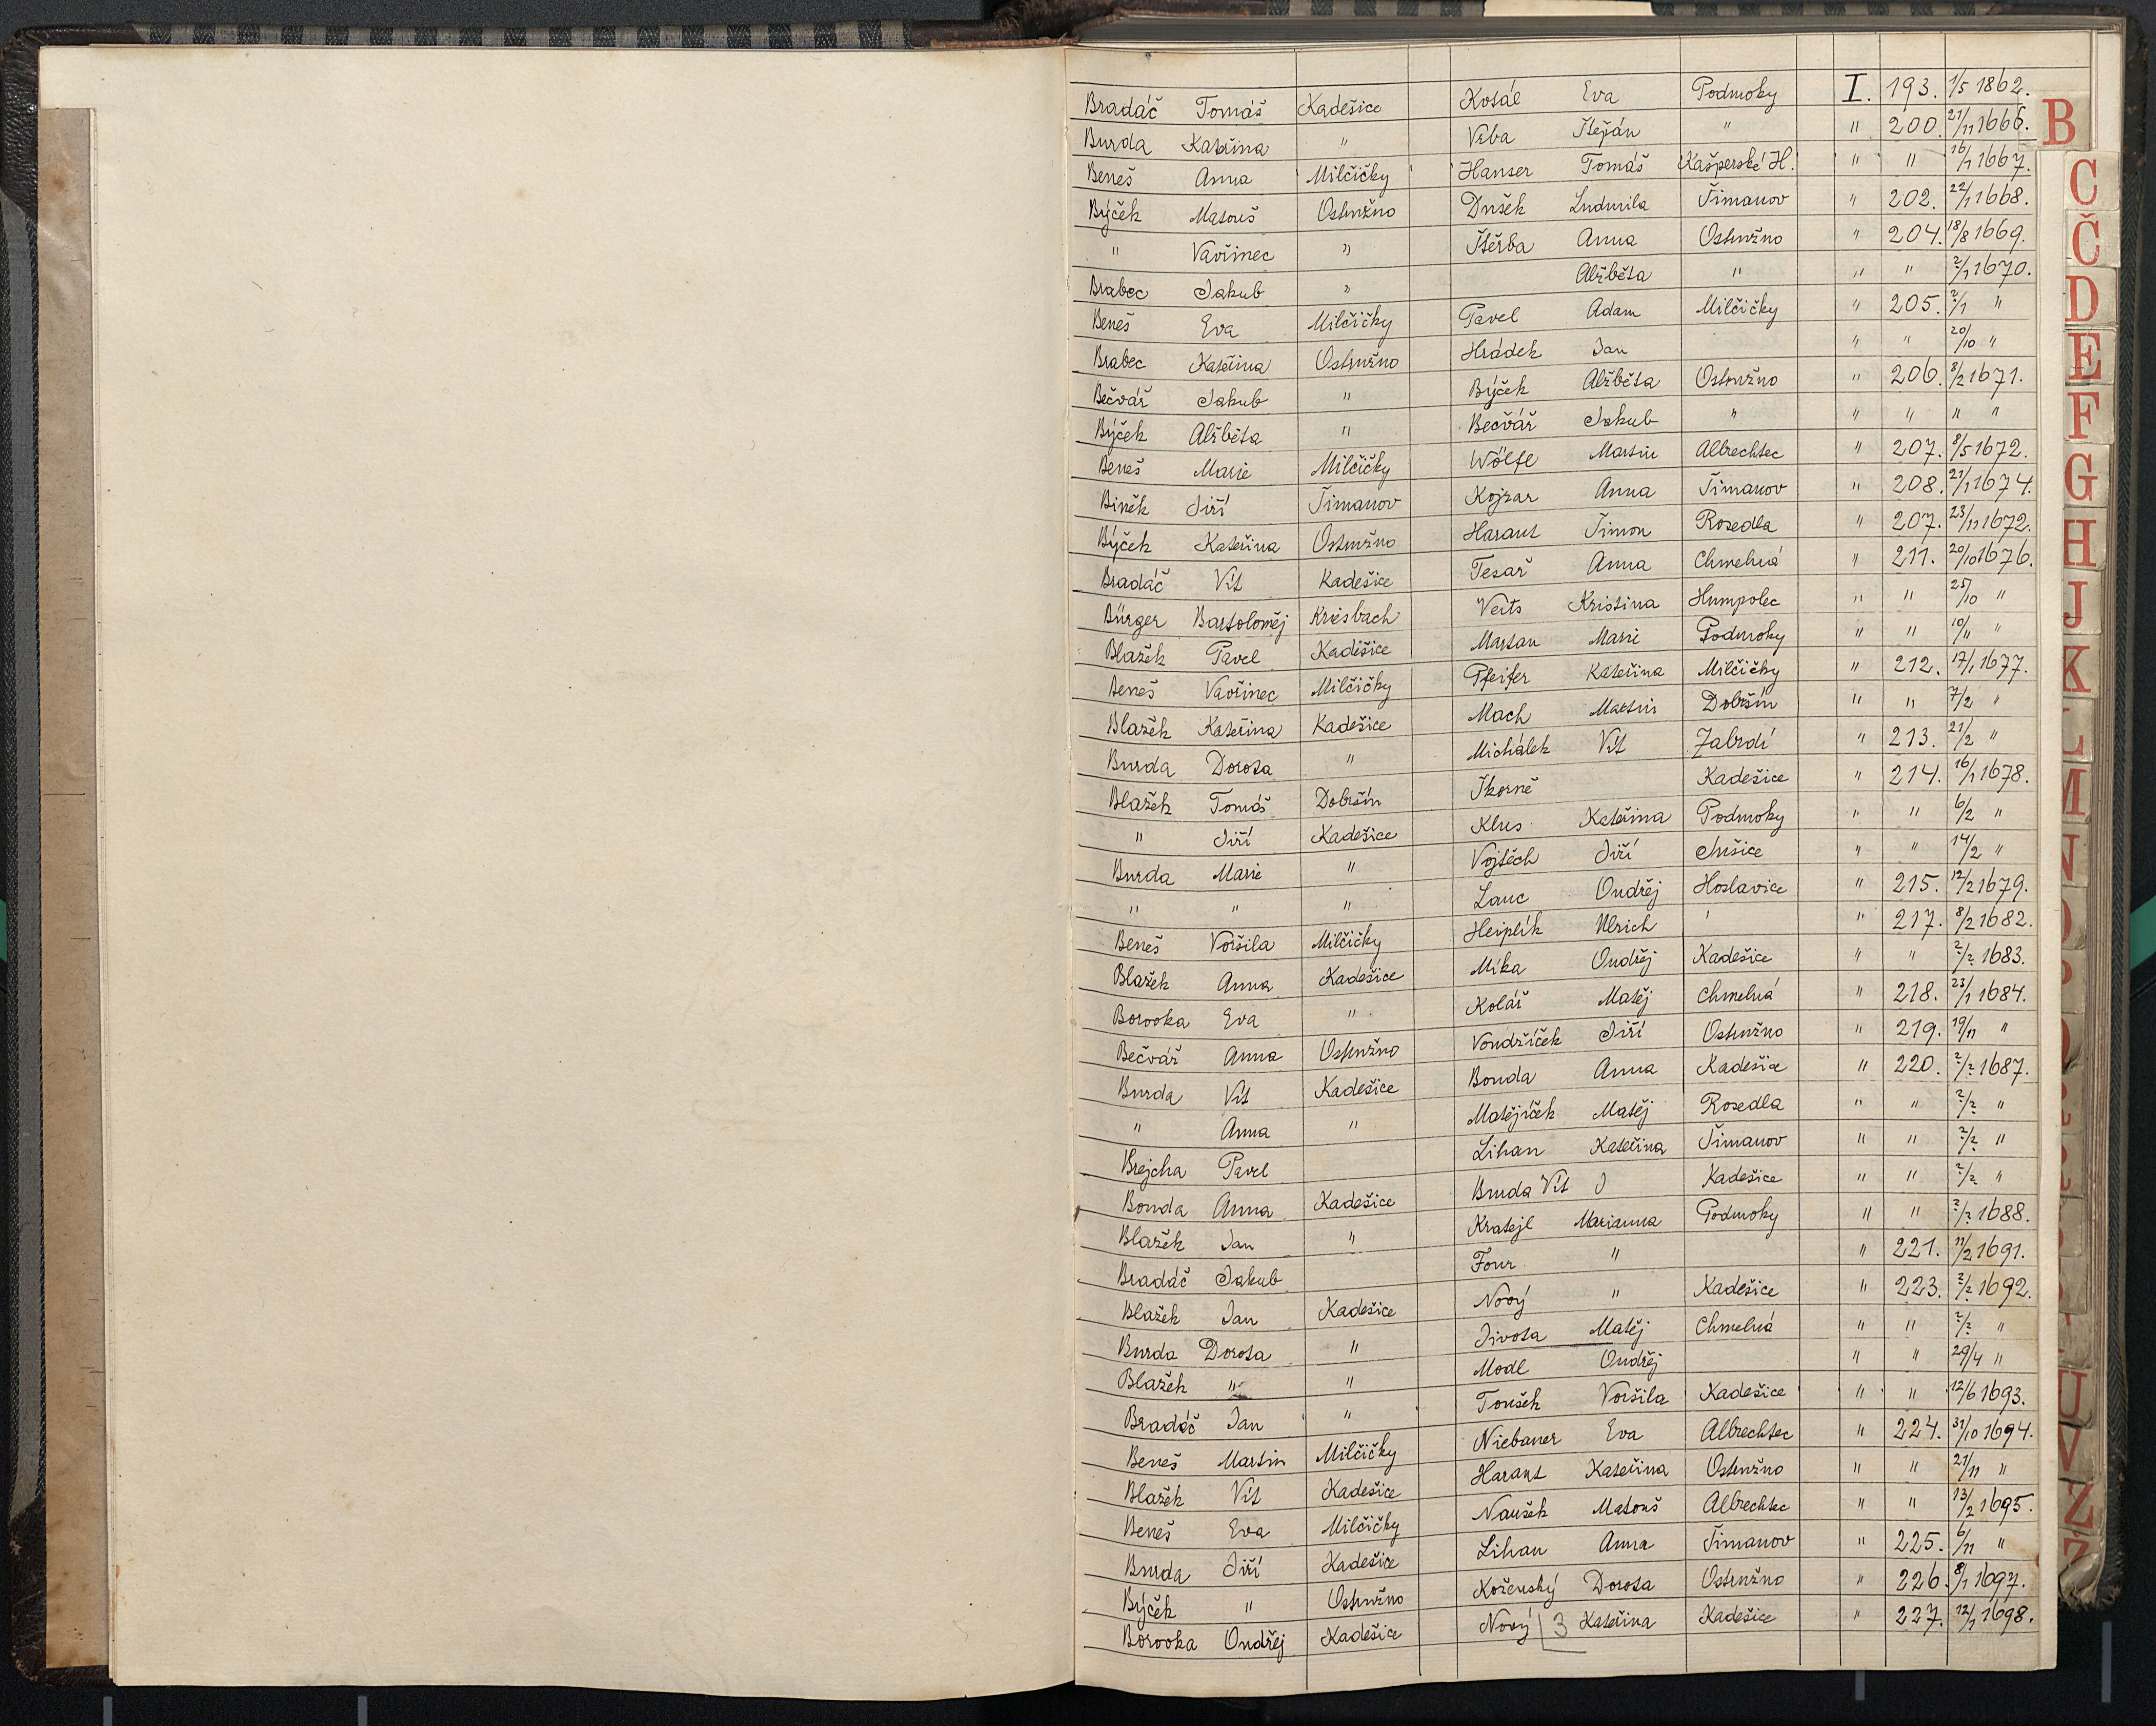 Bradáč Tomáš Kadešice Kotál Eva Podmoky I. 193. 1/5 1862.
Burda Kateřina " Vrba Štěpán " " 200. 21/11 1666.
Beneš Anna Milčičky Hanser Tomáš Kašperské H. " " 16/1 1667.
Býček Matouš Ostružno Dušek Ludmila Šimanov " 202. 22/1 1668.
" Vavřinec " Štěrba Anna Ostružno " 204. 18/8 1669.
Brabec Jakub " Alžběta " " " 2/1 1670.
Beneš Eva Milčičky Pavel Adam Milčičky " 205. 2/1 "
Brabec Kateřina Ostružno Hrádek Jan " " 20/10 "
Bečvář Jakub " Býček Alžběta Ostružno " 206. 8/2 1671.
Býček Alžběta " Bečvář Jakub " " " " "
Beneš Marie Milčičky Wölfl Martin Albrechtec " 207. 8/5 1672.
Biněk Jiří Šimanov Kojzar Anna Šimanov " 208. 21/1 1674.
Býček Kateřina Ostružno Harant Šimon Rozedla " 207. 23/11 1672.
Bradáč Vít Kadešice Tesař Anna Chmelná " 211. 20/10 1676.
Bürger Bartoloměj Kriesbach Veits Kristina Humpolec " " 25/10 "
Blažek Pavel Kadešice Martan Marie Podmoky " " 10/11 "
Beneš Vavřinec Milčičky Pfeifer Kateřina Milčičky " 212. 17/1 1677.
Blažek Kateřina Kadešice Mach Martin Dobršín " " 7/2 "
Burda Dorota " Michálek Vít Zabrdí " 213. 21/2 "
Blažek Tomáš Dobršín Škorně Kadešice " 214. 16/1 1678.
" Jiří Kadešice Klus Kateřina Podmoky " " 6/2 "
Burda Marie " Vojtěch Jiří " " 14/2 "
" " " Lanc Ondřej Hoslavice " 215. 12/2 1679.
Beneš Voršila Milčičky Heiplík Ulrich ' " 217. 8/2 1682.
Blažek Anna Kadešice Mika Ondřej Kadešice " " ?/? 1683.
Borovka Eva " Kolář Matěj Chmelná " 218. 23/1 1684.
Bečvář Anna Ostružno Vondříček Jiří Ostružno " 219. 19/11 "
Burda Vít Kadešice Bouda Anna Kadešice " 220. ?/? 1687.
" Anna " Matějíček Matěj Rozedla " " ?/? "
Brejcha Pavel Lihan Kateřina Šimanov " " ?/? "
Bouda Anna Kadešice Burda Vít J Kadešice " " ?/? "
Blažek Jan " Kratejl Marianna Podmoky " " ?/? 1688.
Bradáč Jakub Four " " 221. 11/2 1691.
Blažek Jan Kadešice Nový " Kadešice " 223. ?/? 1692.
Burda Dorota " Jivota Matěj Chmelná " " ?/? "
Blažek " " Modl Ondřej " " 29/4 "
Bradáč Jan " Toušek Voršila Kadešice " " 12/6 1693.
Beneš Martin Milčičky Niebauer Eva Albrechtec " 224. 31/10 1694.
Blažek Vít Kadešice Harant Kateřina Ostružno " " 21/11 "
Beneš Eva Milčičky Naušek Matouš Albrechtec " " 13/2 1695.
Burda Jiří Kadešice Lihan Anna Šimanov " 225. 6/11 "
Býček " Ostružno Koženský Dorota Ostružno " 226. 8/1 1697.
Borovka Ondřej Kadešice Nový 3 Kateřina Kadešice " 227. 12/1 1698.
B
C
Č
D
E
F
G
H
J
K
L
M
N
U
V
Z